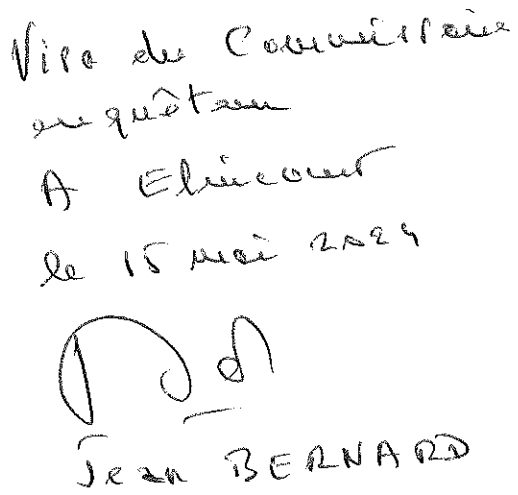 Visa du Commissaire
enquêteur
A Elincourt
le 15 mai 2024
Jean BERNARD